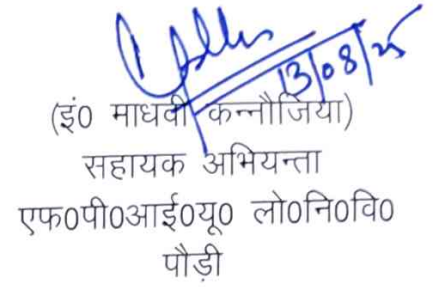 13/08/25
(इं0 माधवी कन्नौजिया)
सहायक अभियन्ता
एफ0पी0आई0यू0 लो0नि0वि0
पौड़ी